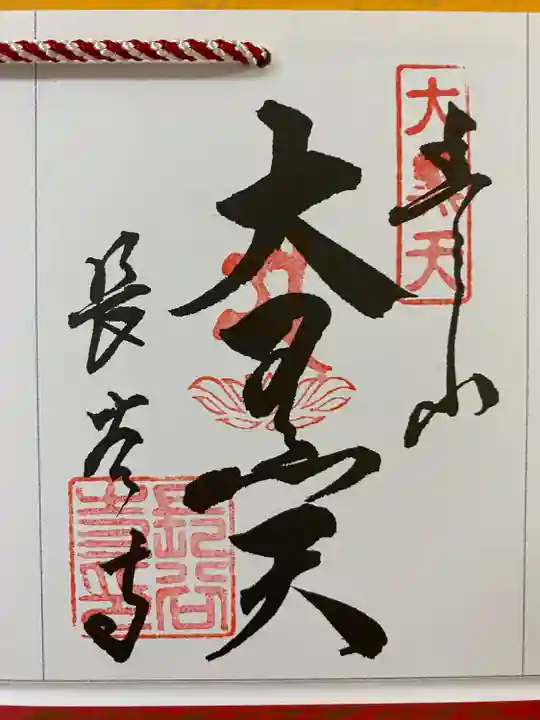 奉拝
大黒天
大黒天
長谷寺
長谷寺印